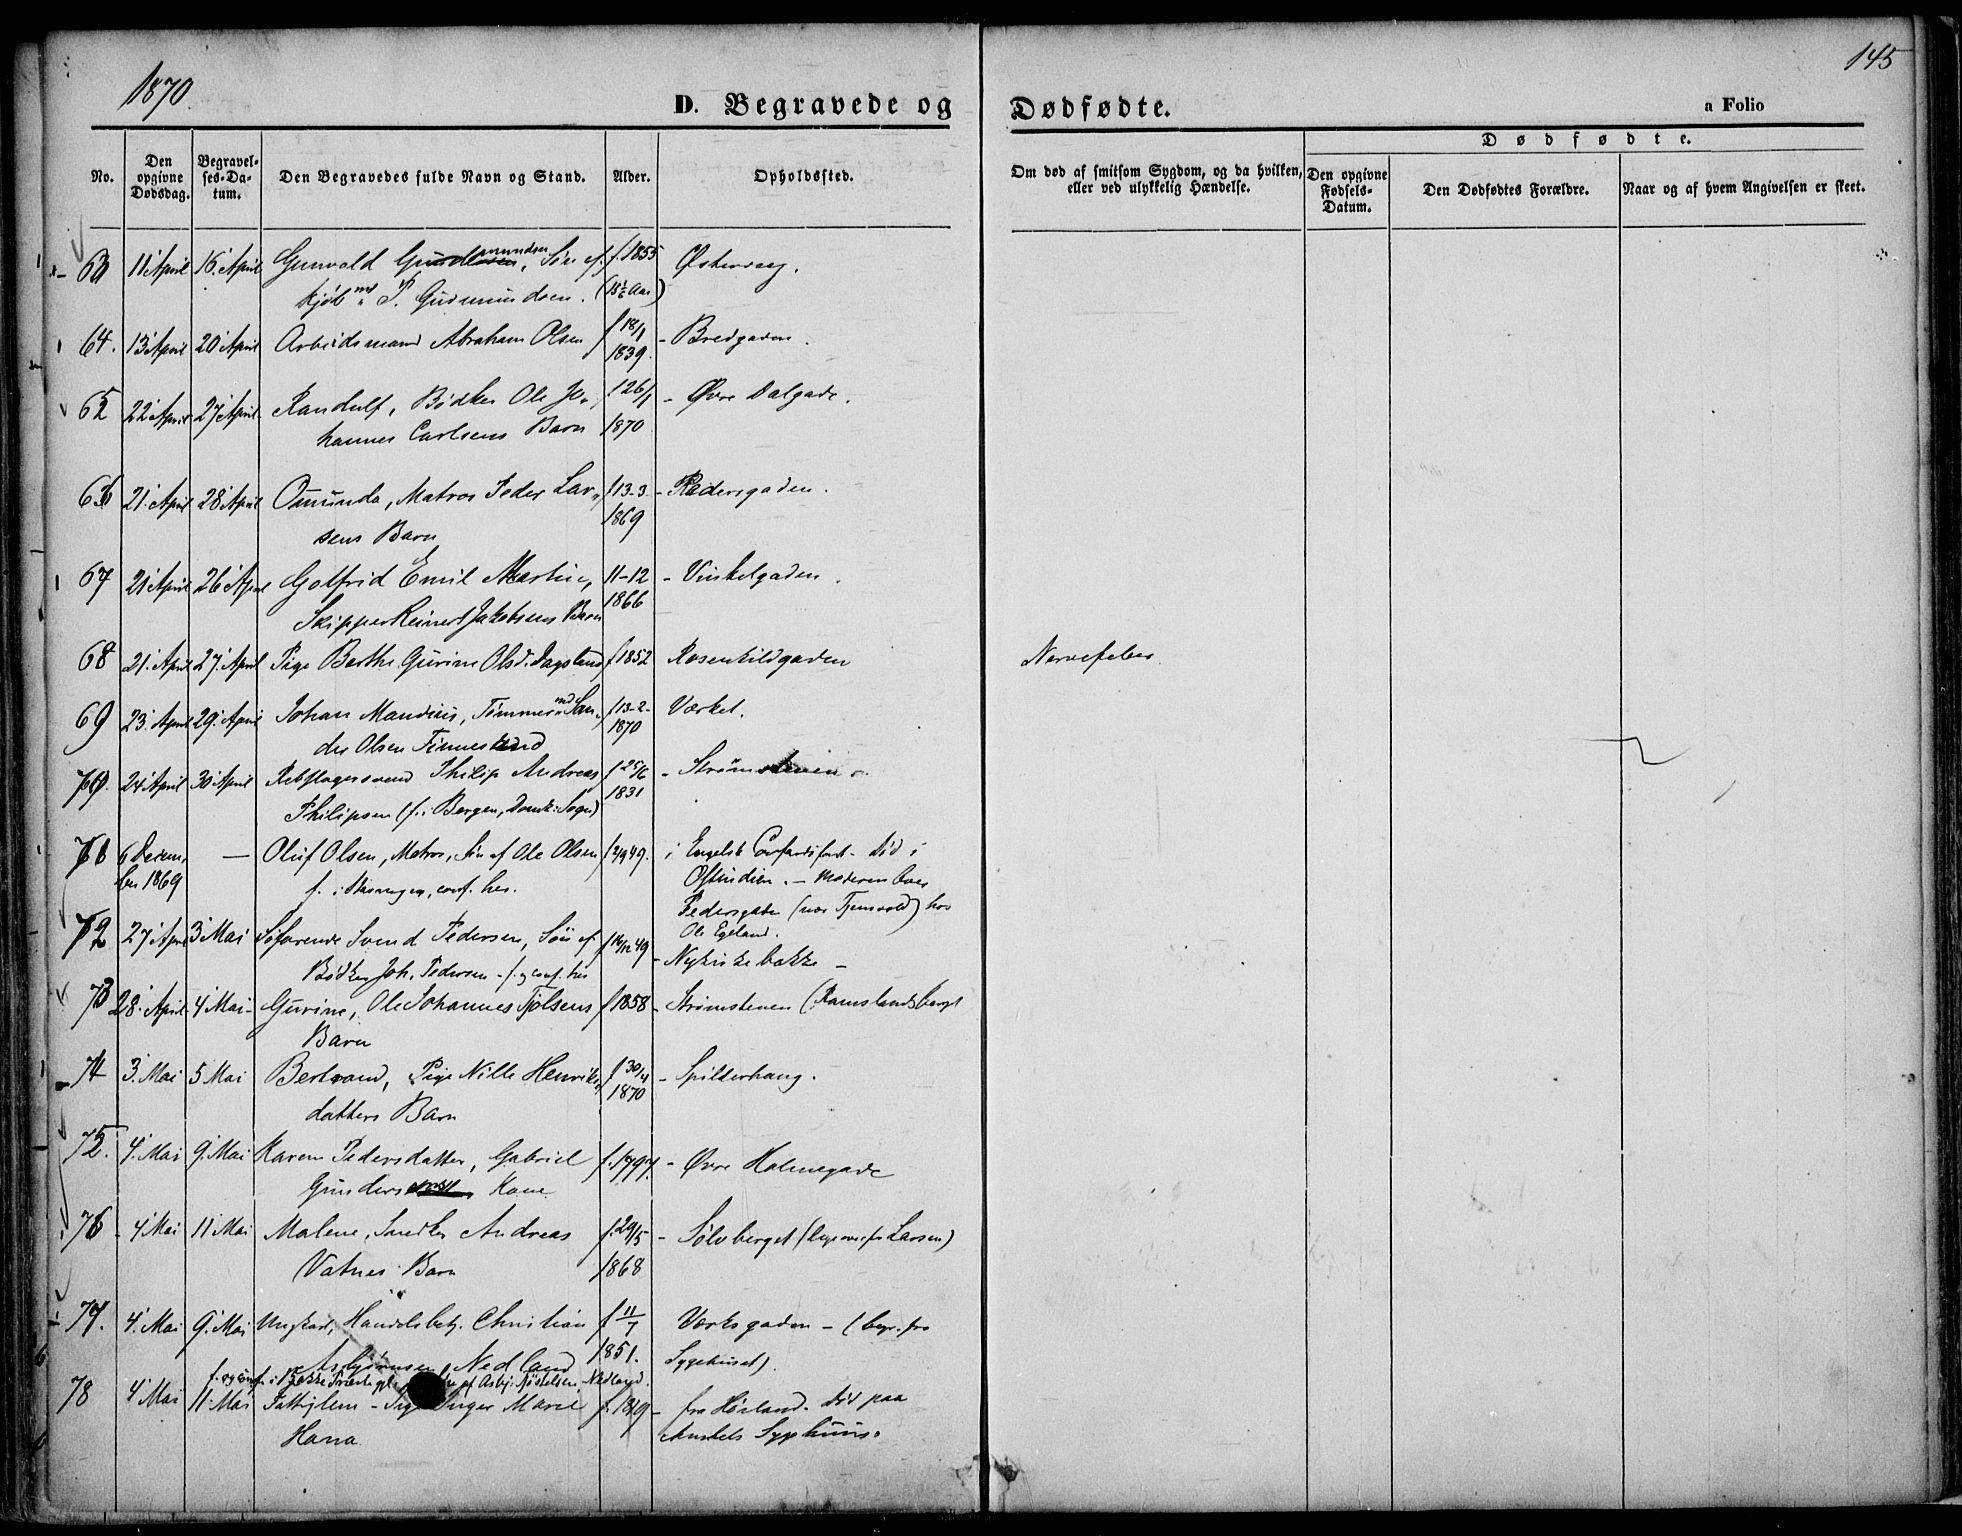 1870.
145
D. Begravede og Dødfødte.
a Folio
No.
Den opgivne Dødsdag.
Begravelses-Datum.
Den Begravedes fulde Navn og Stand.
Alder.
Opholdssted.
Om død af smitsom Sygdom, og da hvilken, eller ved ulykkelig Hændelse.
Dødfødte.
Den opgivne Fødsels-Datum.
Den Dødfødtes Forældre.
Naar og af hvem Angivelsen er skeet.
63 11 April 16. April Gunvald Gudmundsen, Søn af f. 1855
kjøbmd P. Gudmundsen. (15 Aar)
64. 13 April 20 April Arbeidsmand Abraham Olsen f 18/1 - Bredgaden.
1839.
65 22 April 27 April Randulf, Bødker Ole Jo- f 26/1 - Øvre Dalgade.
hannes Carlsens Barn 1870
66 21. April 28 April Omunda, Matros Peder Lar- f 13-3 - Pedersgaden.
sens Barn 1869
67 21 April 26 April Gotfrid Emil Martin, 11-12 - Vinkelgaden.
Skipper Reinert Jakobsens Barn 1866
68 21. April 27. April Pige Berthe Gurine Olsd. Dagsland f 1852 Rosenkildgaden Nervefeber.
69 23. April 29. April Johan Mandius, Tømmermd San- f 13-2- Værket.
der Olsen Finnestand 1870
70. 24 April 30 April Rebslagersvend Philip Andreas f 25/6 - Strømstenen
Philipsen (f. i Bergen, Domk: Sogn) 1831
71 6 Decem- — Oluf Olsen, Matros, Søn af Ole Olsen f 2/9 49. i Engelsk - død i
ber 1869 f. i Stavanger, conf. her. Ostindien. - Moderen boer
Pedersgaden (nær Tjensvold) hos
Ole Egeland.
72 27 April 3 Mai Søfarende Svend Pedersen, Søn af f 14/12 49 - Nykirkebakke -
Bødker Joh. Pedersen - f. og conf. her
73 28. April 4 Mai Gurine, Ole Johannes Tjølsens f 1858 - Strømstenen (Ramslandsberget
Barn
74 3. Mai 5 Mai Bertrand, Pige Nille Henriks- f 30/4 - Spilderhaug.
datters Barn 1870
75. 4. Mai 9. Mai Karen Pedersdatter, Gabriel f. 1797. - Øvre Holmegade
Gunders Kone
76 4 Mai 11 Mai Malene, Snedker Andreas f. 29/5 - Sølvberget ( Larsen)
Vatnes Barn 1868
77. 4. Mai 9. Mai Ungkarl, Handelsbetj. Christian f 11/7 Værksgaden - (begr. fra
Asbjørnsen Nedland 1851. Sygehuset).
f. og conf. i Asbj. Nedland.
78 4 Mai 11 Mai Fattiglem - Pige Inger Marie f. 1849 - fra Høiland. Død paa
Hana Amtets Sygehuus.